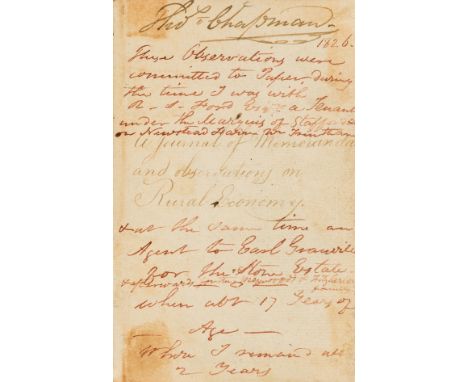 Thos Chapman
1826.
These Observations were
committed to Paper, during
the time I was with
R. S. Ford Esqr a Tenant
under the Marquis of Stafford
on Newstead Farm Nr Trentham
A Journal of Memoranda
and observations on
Rural Economy.
& at the same time an
Agent to Earl Granville
for the Stone Estate.
& afterwards
family
when abt 17 Years of
Age —
Where I remained abt
2 Years